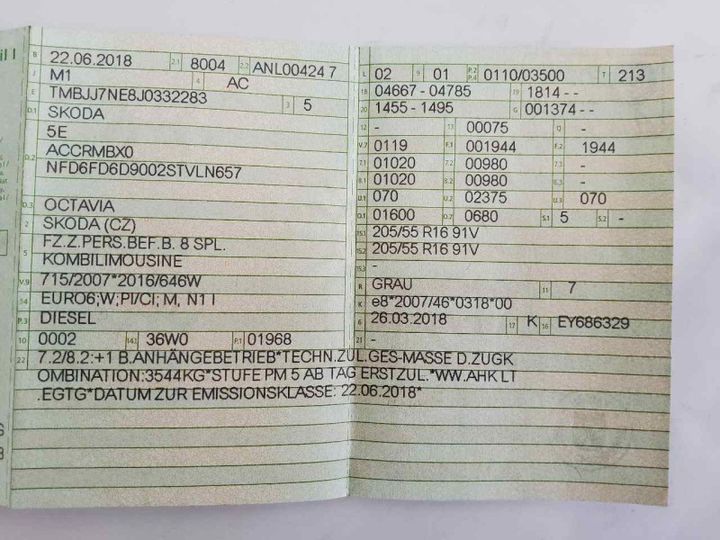 B 22.06.2018 2.1 8004 2.2 ANL00424 7
J M1 4 AC
E TMBJJ7NE8J0332283 3 5
D.1 SKODA
5E
D.2 ACCRMBX0
NFD6FD6D9002STVLN657
D.3 OCTAVIA
2 SKODA (CZ)
5 FZ.Z.PERS.BEF.B. 8 SPL.
KOMBILIMOUSINE
V.9 715/2007*2016/646W
14 EURO6;W;PI/CI; M, N1 I
P.3 DIESEL
10 0002 14.1 36W0 P.1 01968
L 02 9 01 P.2 P.4 0110/03500 T 213
18 04667 - 04785 19 1814 - -
20 1455 - 1495 G 001374 - -
12 - 13 00075 Q -
V.7 0119 F.1 001944 F.2 1944
7.1 01020 7.2 00980 7.3 -
8.1 01020 8.2 00980 8.3 -
U.1 070 U.2 02375 U.3 070
O.1 01600 O.2 0680 S.1 5 S.2 -
15.1 205/55 R16 91V
15.2 205/55 R16 91V
15.3 -
R GRAU 11 7
K e8*2007/46*0318*00
6 26.03.2018 17 K 16 EY686329
21 -
22 7.2/8.2:+1 B.ANHÄNGEBETRIEB*TECHN.ZUL.GES-MASSE D.ZUGK
OMBINATION:3544KG*STUFE PM 5 AB TAG ERSTZUL.*WW.AHK LT
.EGTG*DATUM ZUR EMISSIONSKLASSE: 22.06.2018*